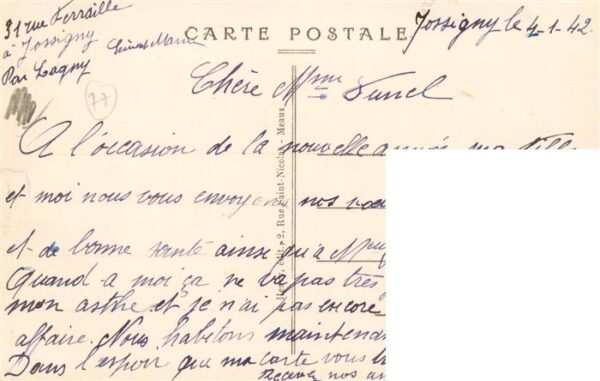 31 rue Ferraille
à Jossigny
Par Lagny
Seine et Marne
CARTE POSTALE
Jossigny le 4-1-42.
77
Chère Mme Funel
A l'occasion de la nouvelle année ma fille
et moi nous vous envoyons nos vœu
et de bonne santé ainsi qu'à
Quand a moi ça ne va pas très
mon asthe et je n'ai pas encore
affaire. Nous habitons maintenan
Dans l'espoir que ma carte vous
Recevez nos am
édit. 2, Rue Saint-Nicolas, Meaux